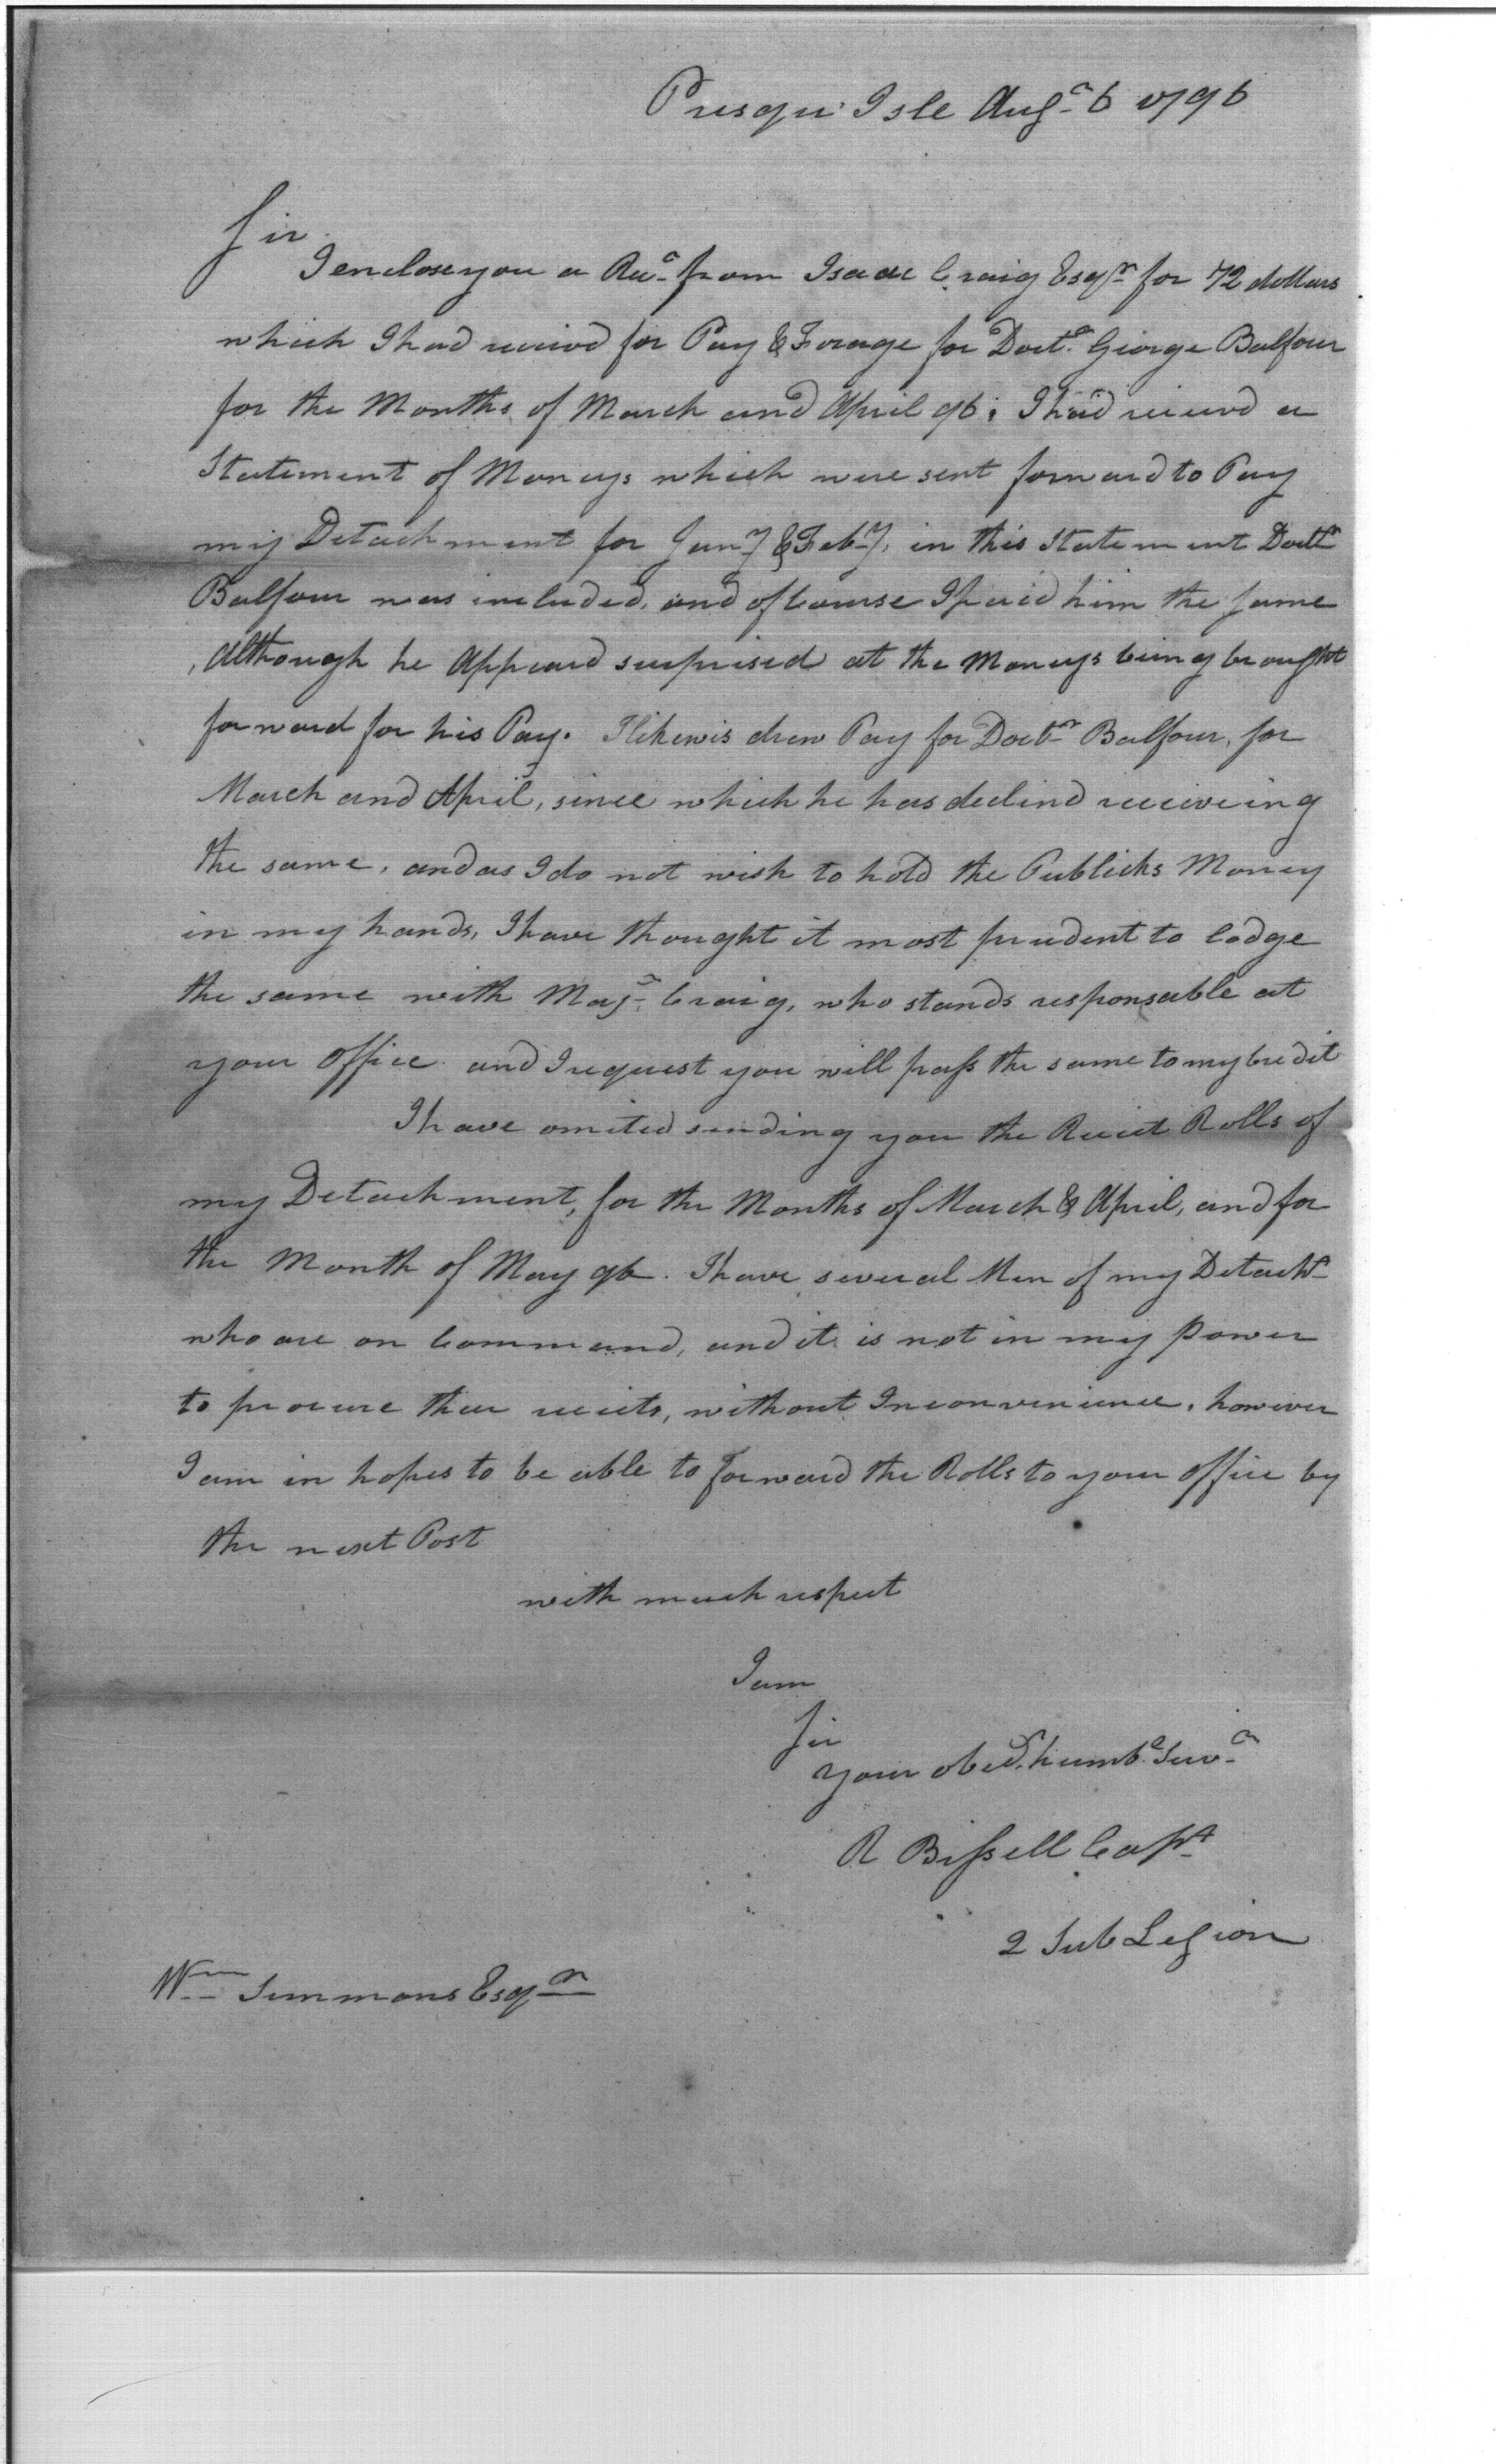 Presqu' Isle Augt 6 1796
Sir
I enclose you a Rect from Isaac Craig Esqr for 72 dollars
which I had receivd for Pay & Forage for Doctr George Balfour
for the Months of March and April 96, I had receivd a
Statement of Moneys which were sent forward to Pay
my Detachment for Jany & Feby, in this Statement Doctr
Balfour was included, and of Course I paid him the same
, Although he Appeard surprised at the Moneys being brought
forward for his Pay. I likewis drew Pay for Doctr Balfour, for
March and April, since which he has declind receiveing
the same, and as I do not wish to hold the Publicks Money
in my hands, I have thought it most prudent to lodge
the same with Majr Craig, who stands responsable at
your Office and I request you will pass the same to my Credit
I have omited sending you the Reciet Rolls of
my Detachment, for the Months of March & April, and for
the Month of May 96. I have several Men of my Detacht
who are on Command, and it is not in my Power
to procure their reciets, without Inconvenience, however
I am in hopes to be able to forward the Rolls to your Office by
the next Post
with much respect
I am
Sir
your obedt humbe Servt
R Bissell Capt
2 Sub Legion
Wm Simmons Esqr